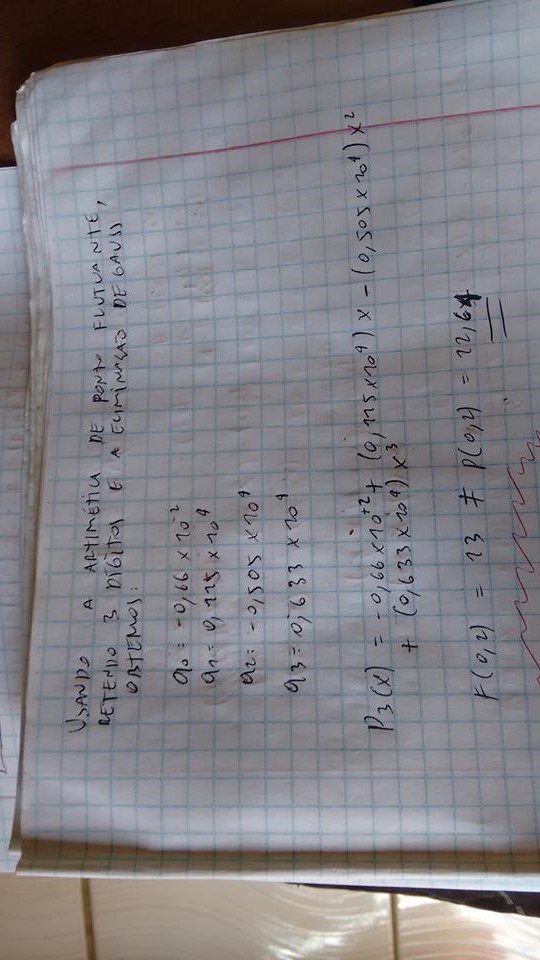 USANDO A ARITIMÉTICA DE PONTO FLUTUANTE,
RETENDO 3 DÍGITOS E A ELIMINAÇÃO DE GAUSS
OBTEMOS:
a0 = -0,66 x 10^-2
a1 = 0,115 x 10^4
a2 = -0,505 x 10^4
a3 = 0,633 x 10^4
P3(x) = -0,66 x 10^+2 + (0,115 x 10^4) x - (0,505 x 10^4) x^2
+ (0,633 x 10^4) x^3
F(0,2) = 13 ≠ P(0,2) = 12,64